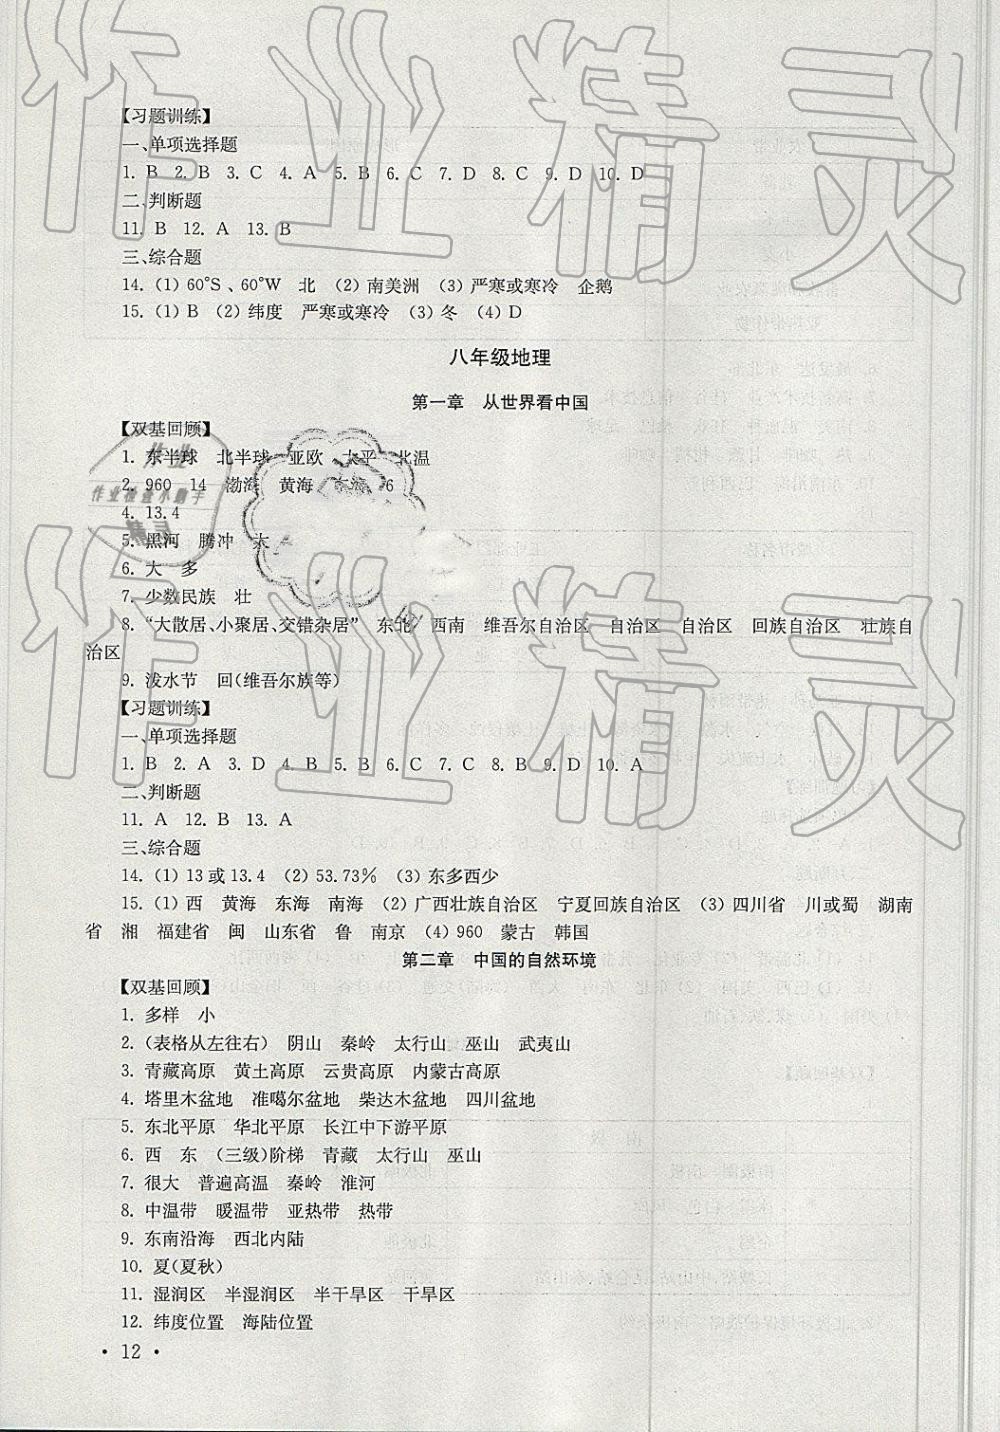 【习题训练】
一、单项选择题
1. B 2. B 3. C 4. A 5. B 6. C 7. D 8. C 9. D 10. D
二、判断题
11. B 12. A 13. B
三、综合题
14. (1) 60°S、60°W 北 (2) 南美洲 (3) 严寒或寒冷 企鹅
15. (1) B (2) 纬度 严寒或寒冷 (3) 冬 (4) D
八年级地理
第一章 从世界看中国
【双基回顾】
1. 东半球 北半球 亚欧 太平 北温
2. 960 14 渤海 黄海 东海 6
4. 13.4
5. 黑河 腾冲 大
6. 大 多
7. 少数民族 壮
8. “大散居、小聚居、交错杂居” 东北 西南 维吾尔自治区 自治区 自治区 回族自治区 壮族自
治区
9. 泼水节 回(维吾尔族等)
【习题训练】
一、单项选择题
1. B 2. A 3. D 4. B 5. B 6. C 7. C 8. B 9. D 10. A
二、判断题
11. A 12. B 13. A
三、综合题
14. (1) 13 或 13.4 (2) 53.73% (3) 东多西少
15. (1) 西 黄海 东海 南海 (2) 广西壮族自治区 宁夏回族自治区 (3) 四川省 川或蜀 湖南
省 湘 福建省 闽 山东省 鲁 南京 (4) 960 蒙古 韩国
第二章 中国的自然环境
【双基回顾】
1. 多样 小
2. (表格从左往右) 阴山 秦岭 太行山 巫山 武夷山
3. 青藏高原 黄土高原 云贵高原 内蒙古高原
4. 塔里木盆地 准噶尔盆地 柴达木盆地 四川盆地
5. 东北平原 华北平原 长江中下游平原
6. 西 东 (三级)阶梯 青藏 太行山 巫山
7. 很大 普遍高温 秦岭 淮河
8. 中温带 暖温带 亚热带 热带
9. 东南沿海 西北内陆
10. 夏(夏秋)
11. 湿润区 半湿润区 半干旱区 干旱区
12. 纬度位置 海陆位置
• 12 •
作业精灵
作业精灵
作业
作业检查小助手
精灵